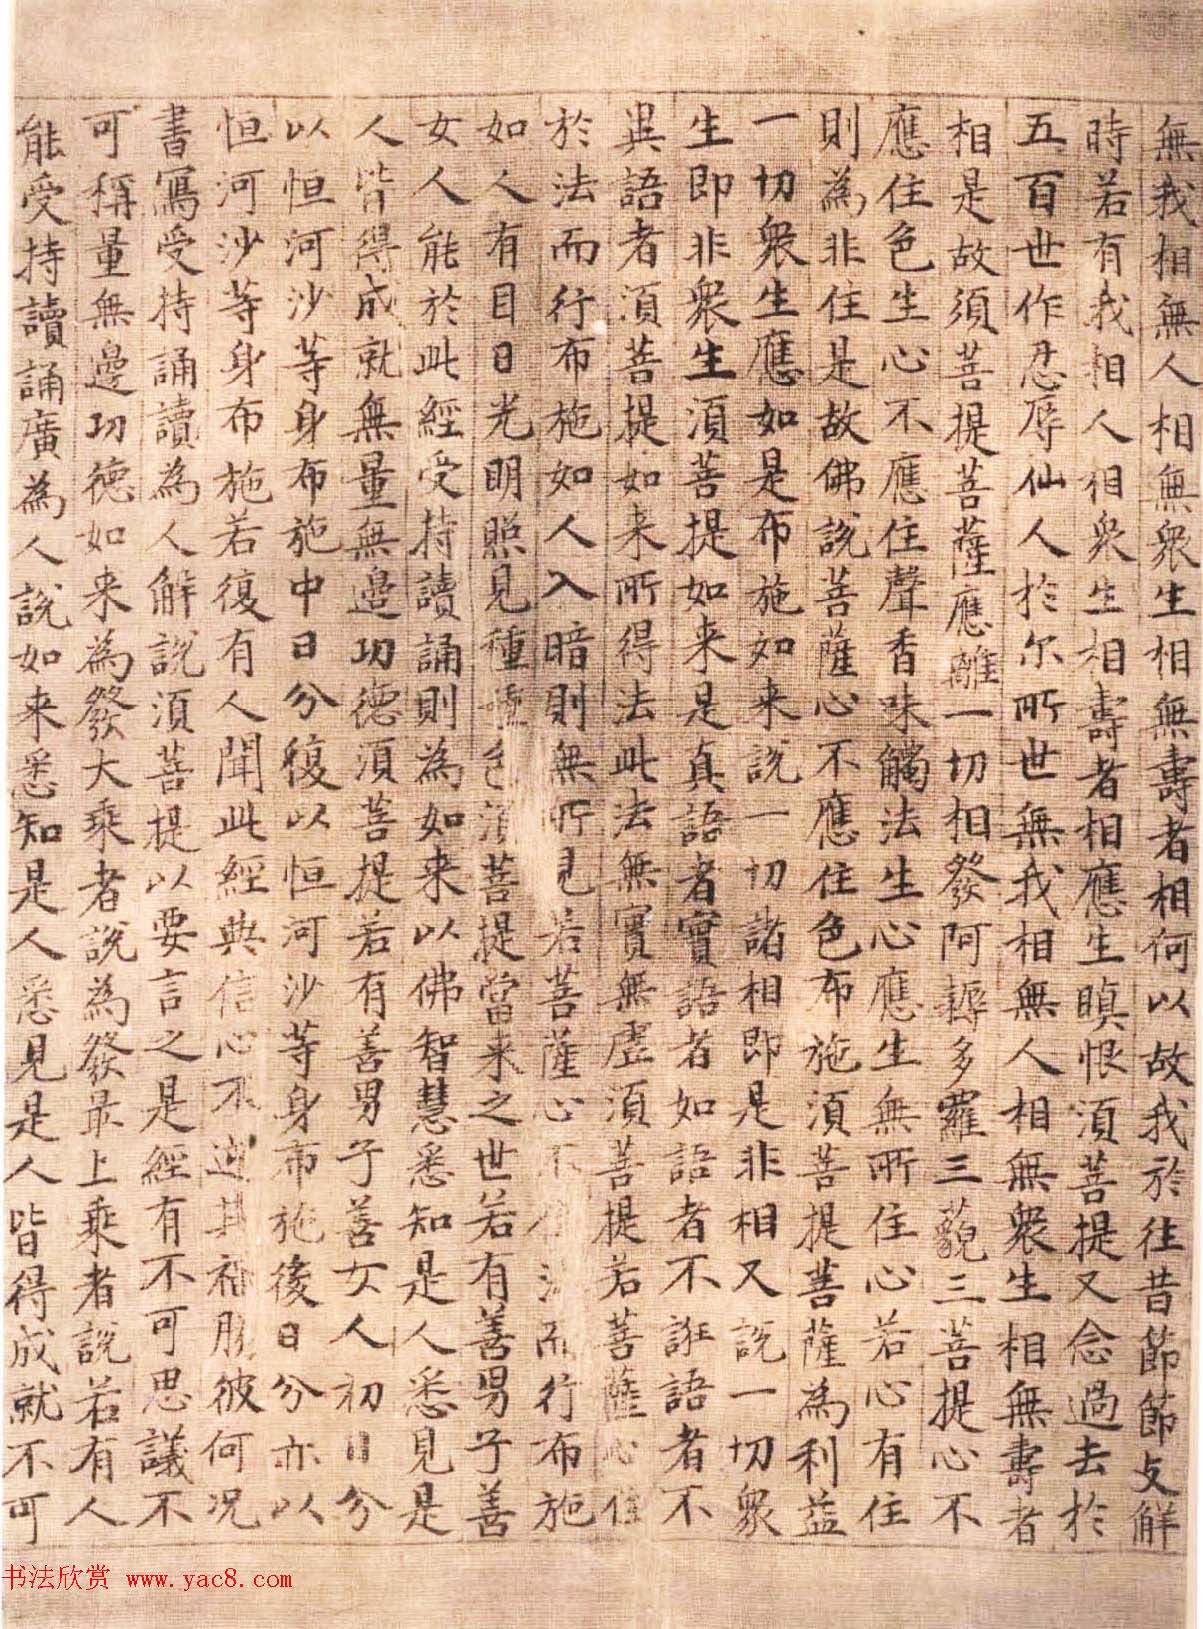 無我相無人相無衆生相無壽者相何以故我於往昔節節支解
時若有我相人相衆生相壽者相應生瞋恨須菩提又念過去於
五百世作忍辱仙人於尔所世無我相無人相無衆生相無壽者
相是故須菩提菩薩應離一切相發阿耨多羅三藐三菩提心不
應住色生心不應住聲香味觸法生心應生無所住心若心有住
則為非住是故佛說菩薩心不應住色布施須菩提菩薩為利益
一切衆生應如是布施如来說一切諸相即是非相又說一切衆
生即非衆生須菩提如来是真語者實語者如語者不誑語者不
異語者須菩提如来所得法此法無實無虛須菩提若菩薩心住
於法而行布施如人入暗則無所見若菩薩心不住法而行布施
如人有目日光明照見種種色須菩提當来之世若有善男子善
女人能於此經受持讀誦則為如来以佛智慧悉知是人悉見是
人皆得成就無量無邊功德須菩提若有善男子善女人初日分
以恒河沙等身布施中日分復以恒河沙等身布施後日分亦以
恒河沙等身布施若復有人聞此經典信心不逆其福勝彼何況
書寫受持誦讀為人解說須菩提以要言之是經有不可思議不
可稱量無邊功德如来為發大乘者說為發最上乘者說若有人
能受持讀誦廣為人說如来悉知是人悉見是人皆得成就不可
书法欣赏 www.yac8.com